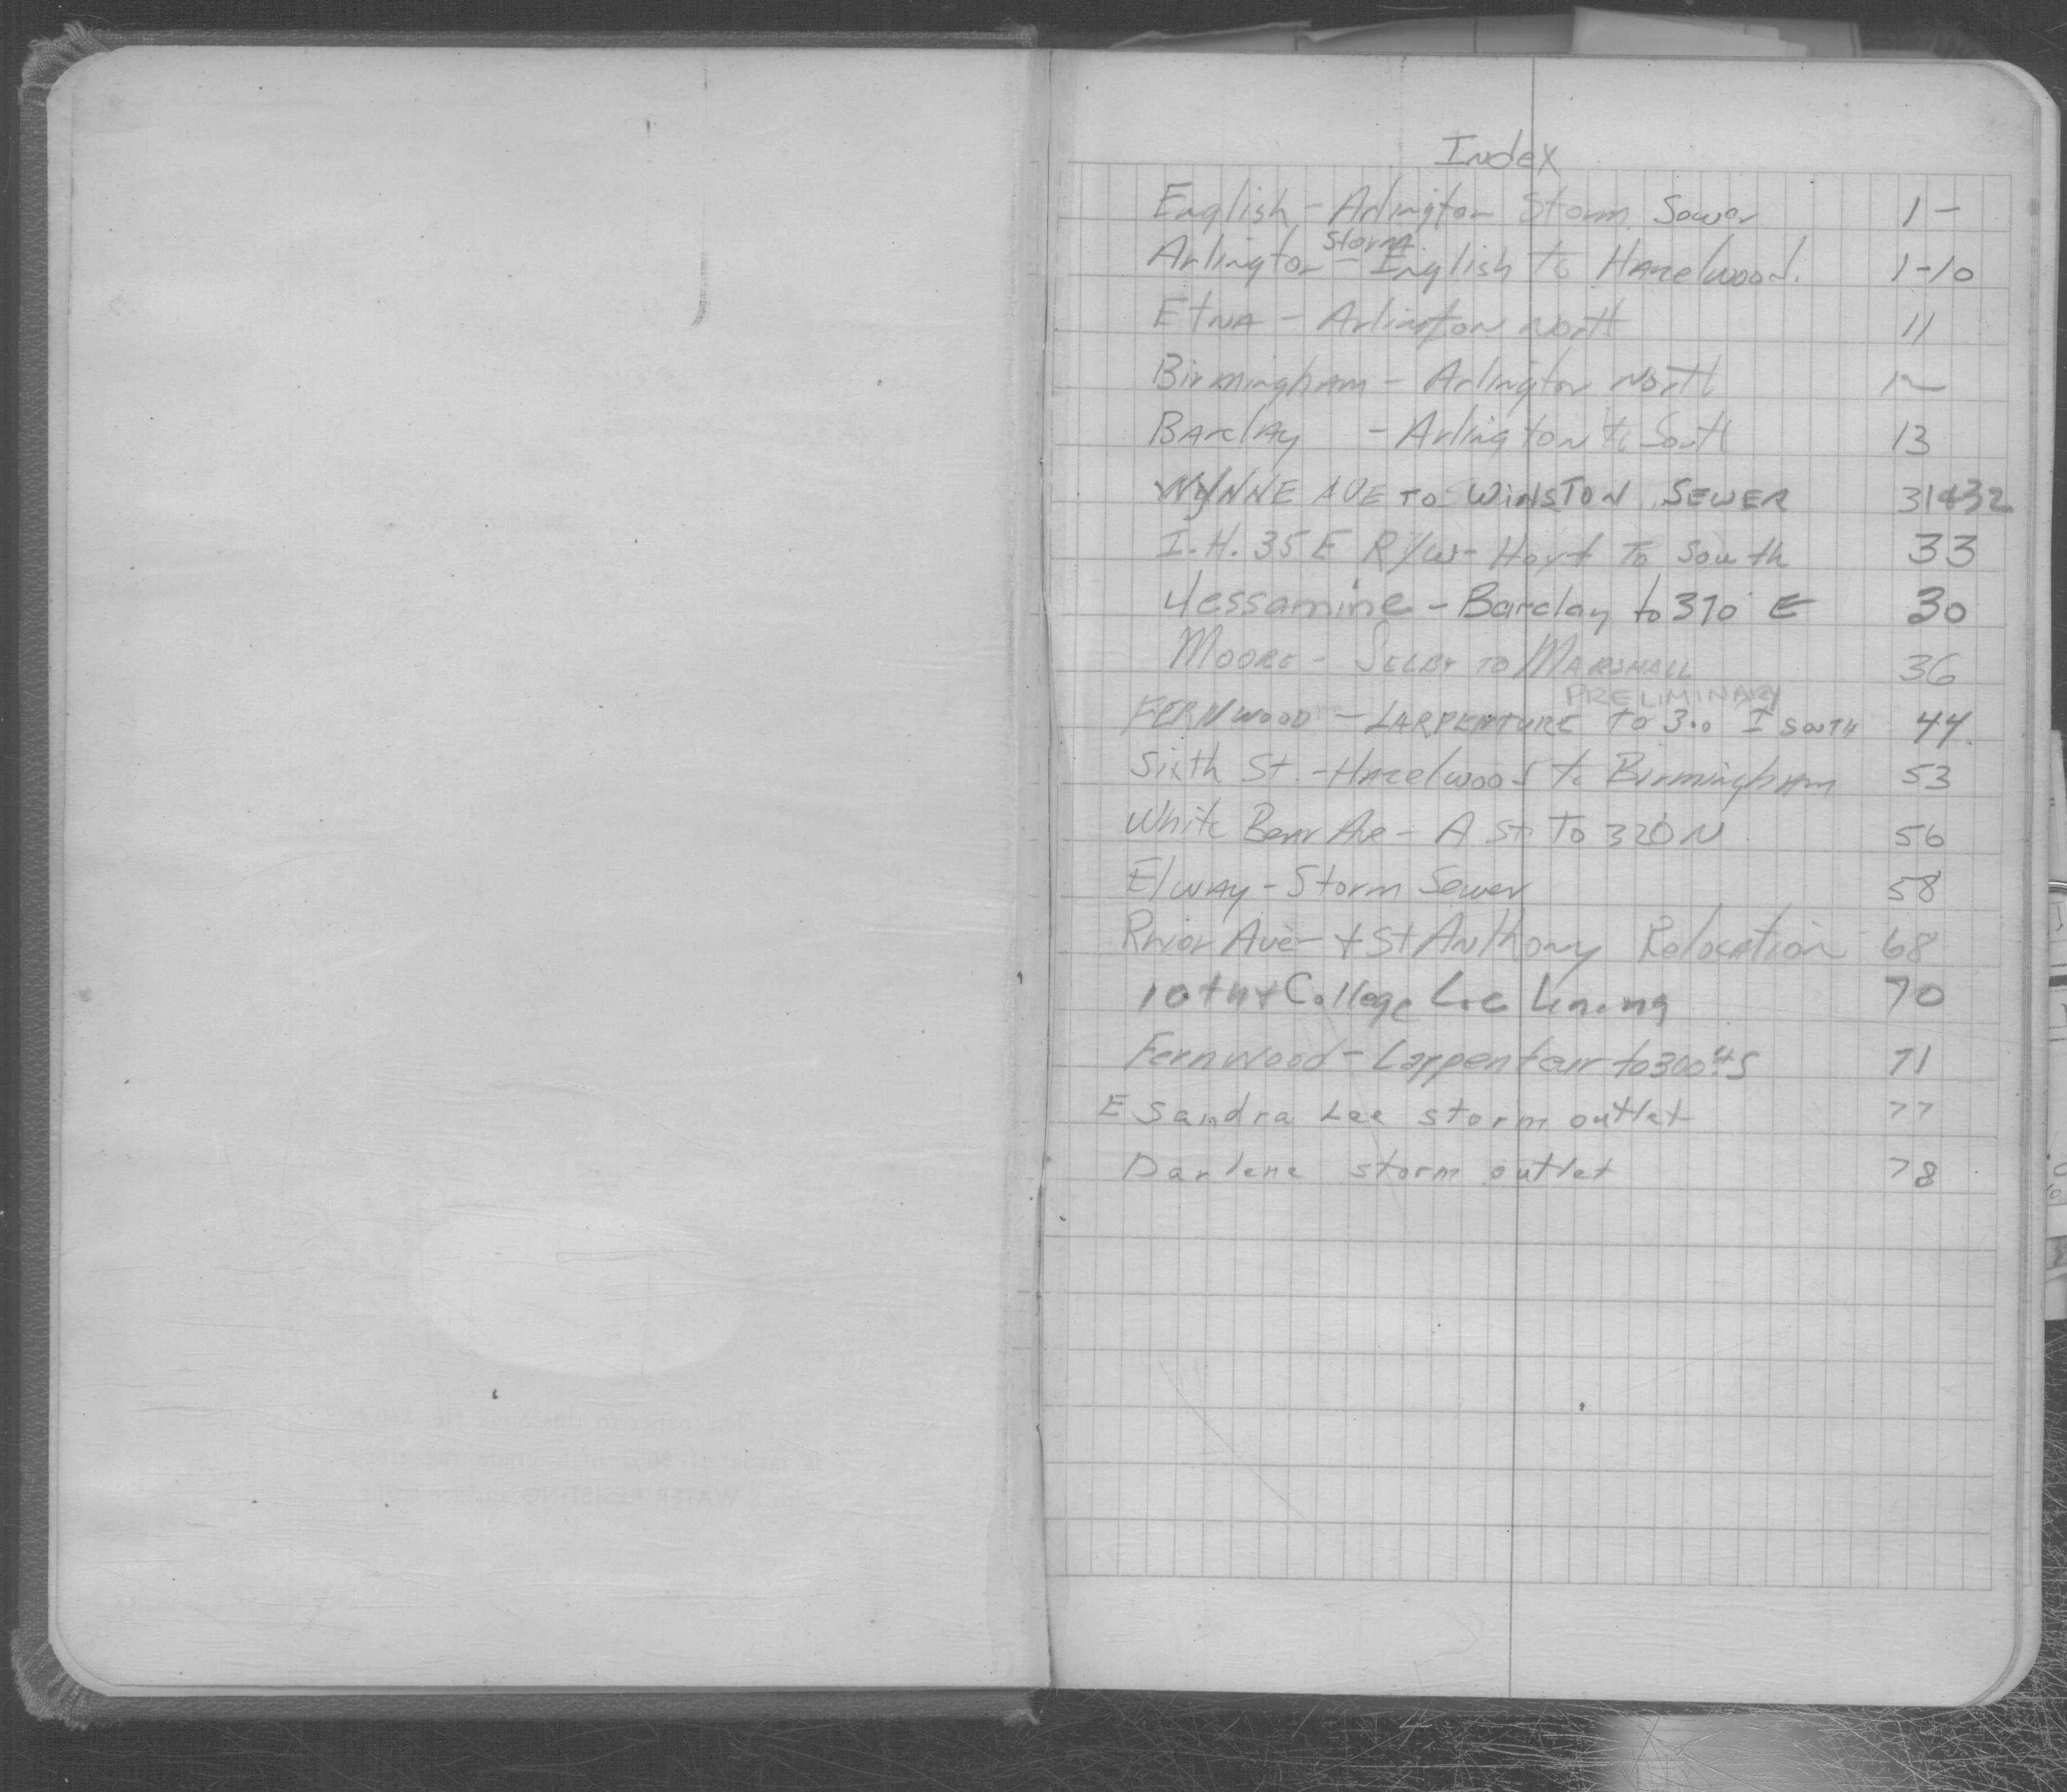 Index
English - Arlington Storm Sewer 1 -
Storm
Arlington - English to Hazelwood. 1-10
Etna - Arlington North 11
Birmingham - Arlington North 12
Barclay - Arlington to South 13
WYNNE AVE TO WINSTON SEWER 31&32
I.H. 35E R/W - Hoyt To South 33
Jessamine - Barclay to 370' E 30
MOORE - SELBY TO MARSHALL 36
PRELIMINARY
FERNWOOD - LARPENTURE to 300 ± SOUTH 44
Sixth St. - Hazelwood to Birmingham 53
White Bear Ave - A St. To 320 N 56
Elway - Storm Sewer 58
Prior Ave - + St Anthony Relocation 68
10th + College Loc Lining 70
Fernwood - Larpenteur to 300' ± S 71
E Sandra Lee storm outlet 77
Darlene storm outlet 78